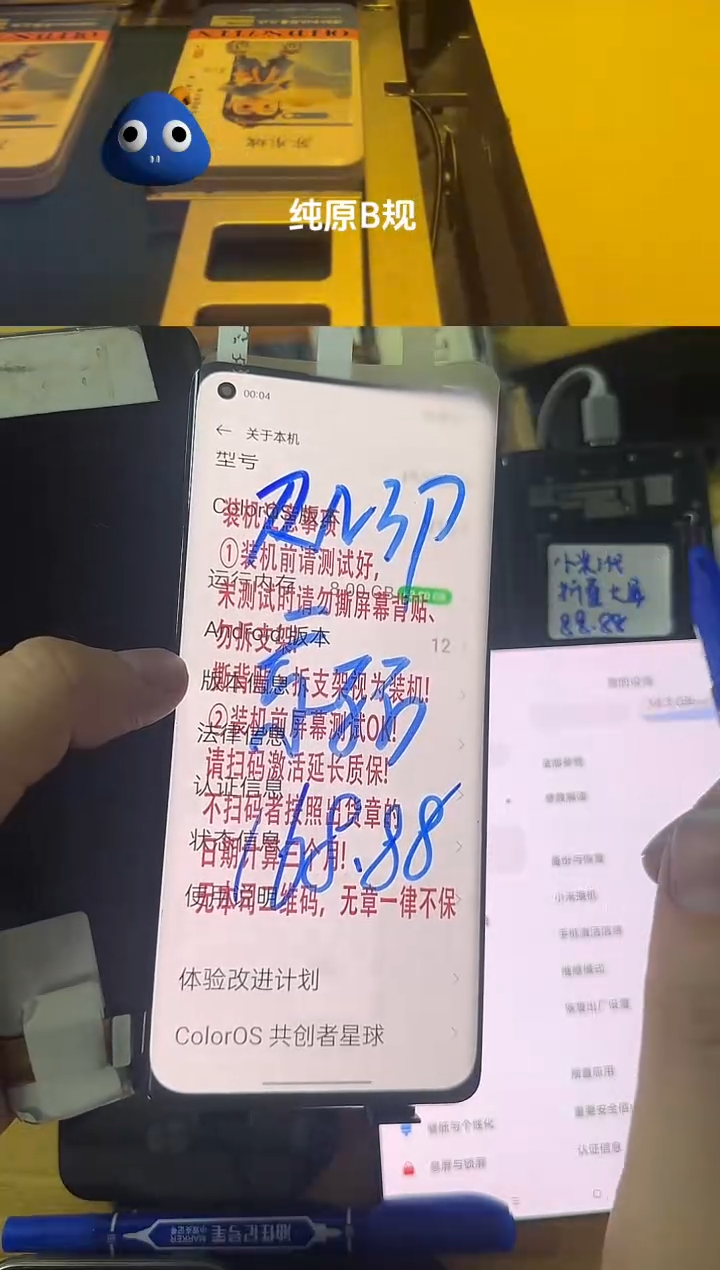 纯原B规
00:04
关于本机
型号
ColorOS版本
装机注意事项
①装机前请测试好，
运行内存 8.00 GB
未测试时请勿撕屏幕背贴、
勿拆支架
Android 版本 12
版本信息
拆支架视为装机!
②装机前屏幕测试OK!
法律信息
请扫码激活延长质保!
认证信息
不扫码者按照出货章的
状态信息
日期计算三个月!
使用说明
维码，无章一律不保
体验改进计划
ColorOS 共创者星球
168.88
折叠大屏
88.88
我的设备
全部参数
备份与恢复
小米换机
维修模式
恢复出厂设置
认证信息
壁纸与个性化
息屏与锁屏
油性记号笔
MARKER